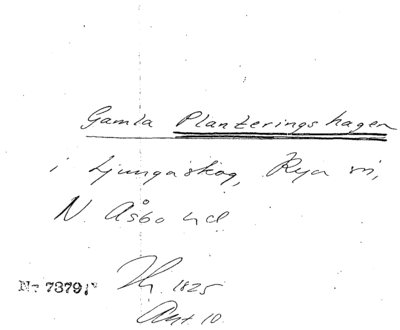 Gamla Planteringshagen
i Ljungaskog, Rya sn,
N. Åsbo hd
Nr 7379:
1825
Ant. 10.